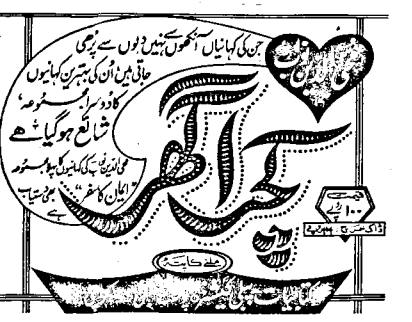 محی الدین نواب
جن کی کہانیاں آنکھوں سے نہیں دلوں سے پڑھی
جاتی ہیں اُن کی بہترین کہانیوں
کا دوسرا مجموعہ،
شائع ہوگیا ہے
محی الدین نواب کی کہانیوں کا پہلا مجموعہ
"ایمان کا سفر" بھی دستیاب
ہے
کچرا گھر
قیمت
۱۰۰ روپے
ڈاک خرچ روپے
ملنے کا پتہ
کتابیات پبلی کیشنز